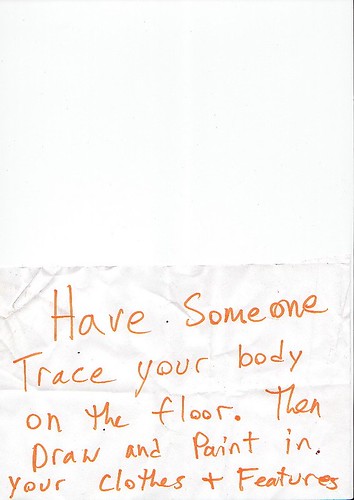 Have Someone
Trace your body
on the floor. Then
Draw and Paint in
your clothes + Features